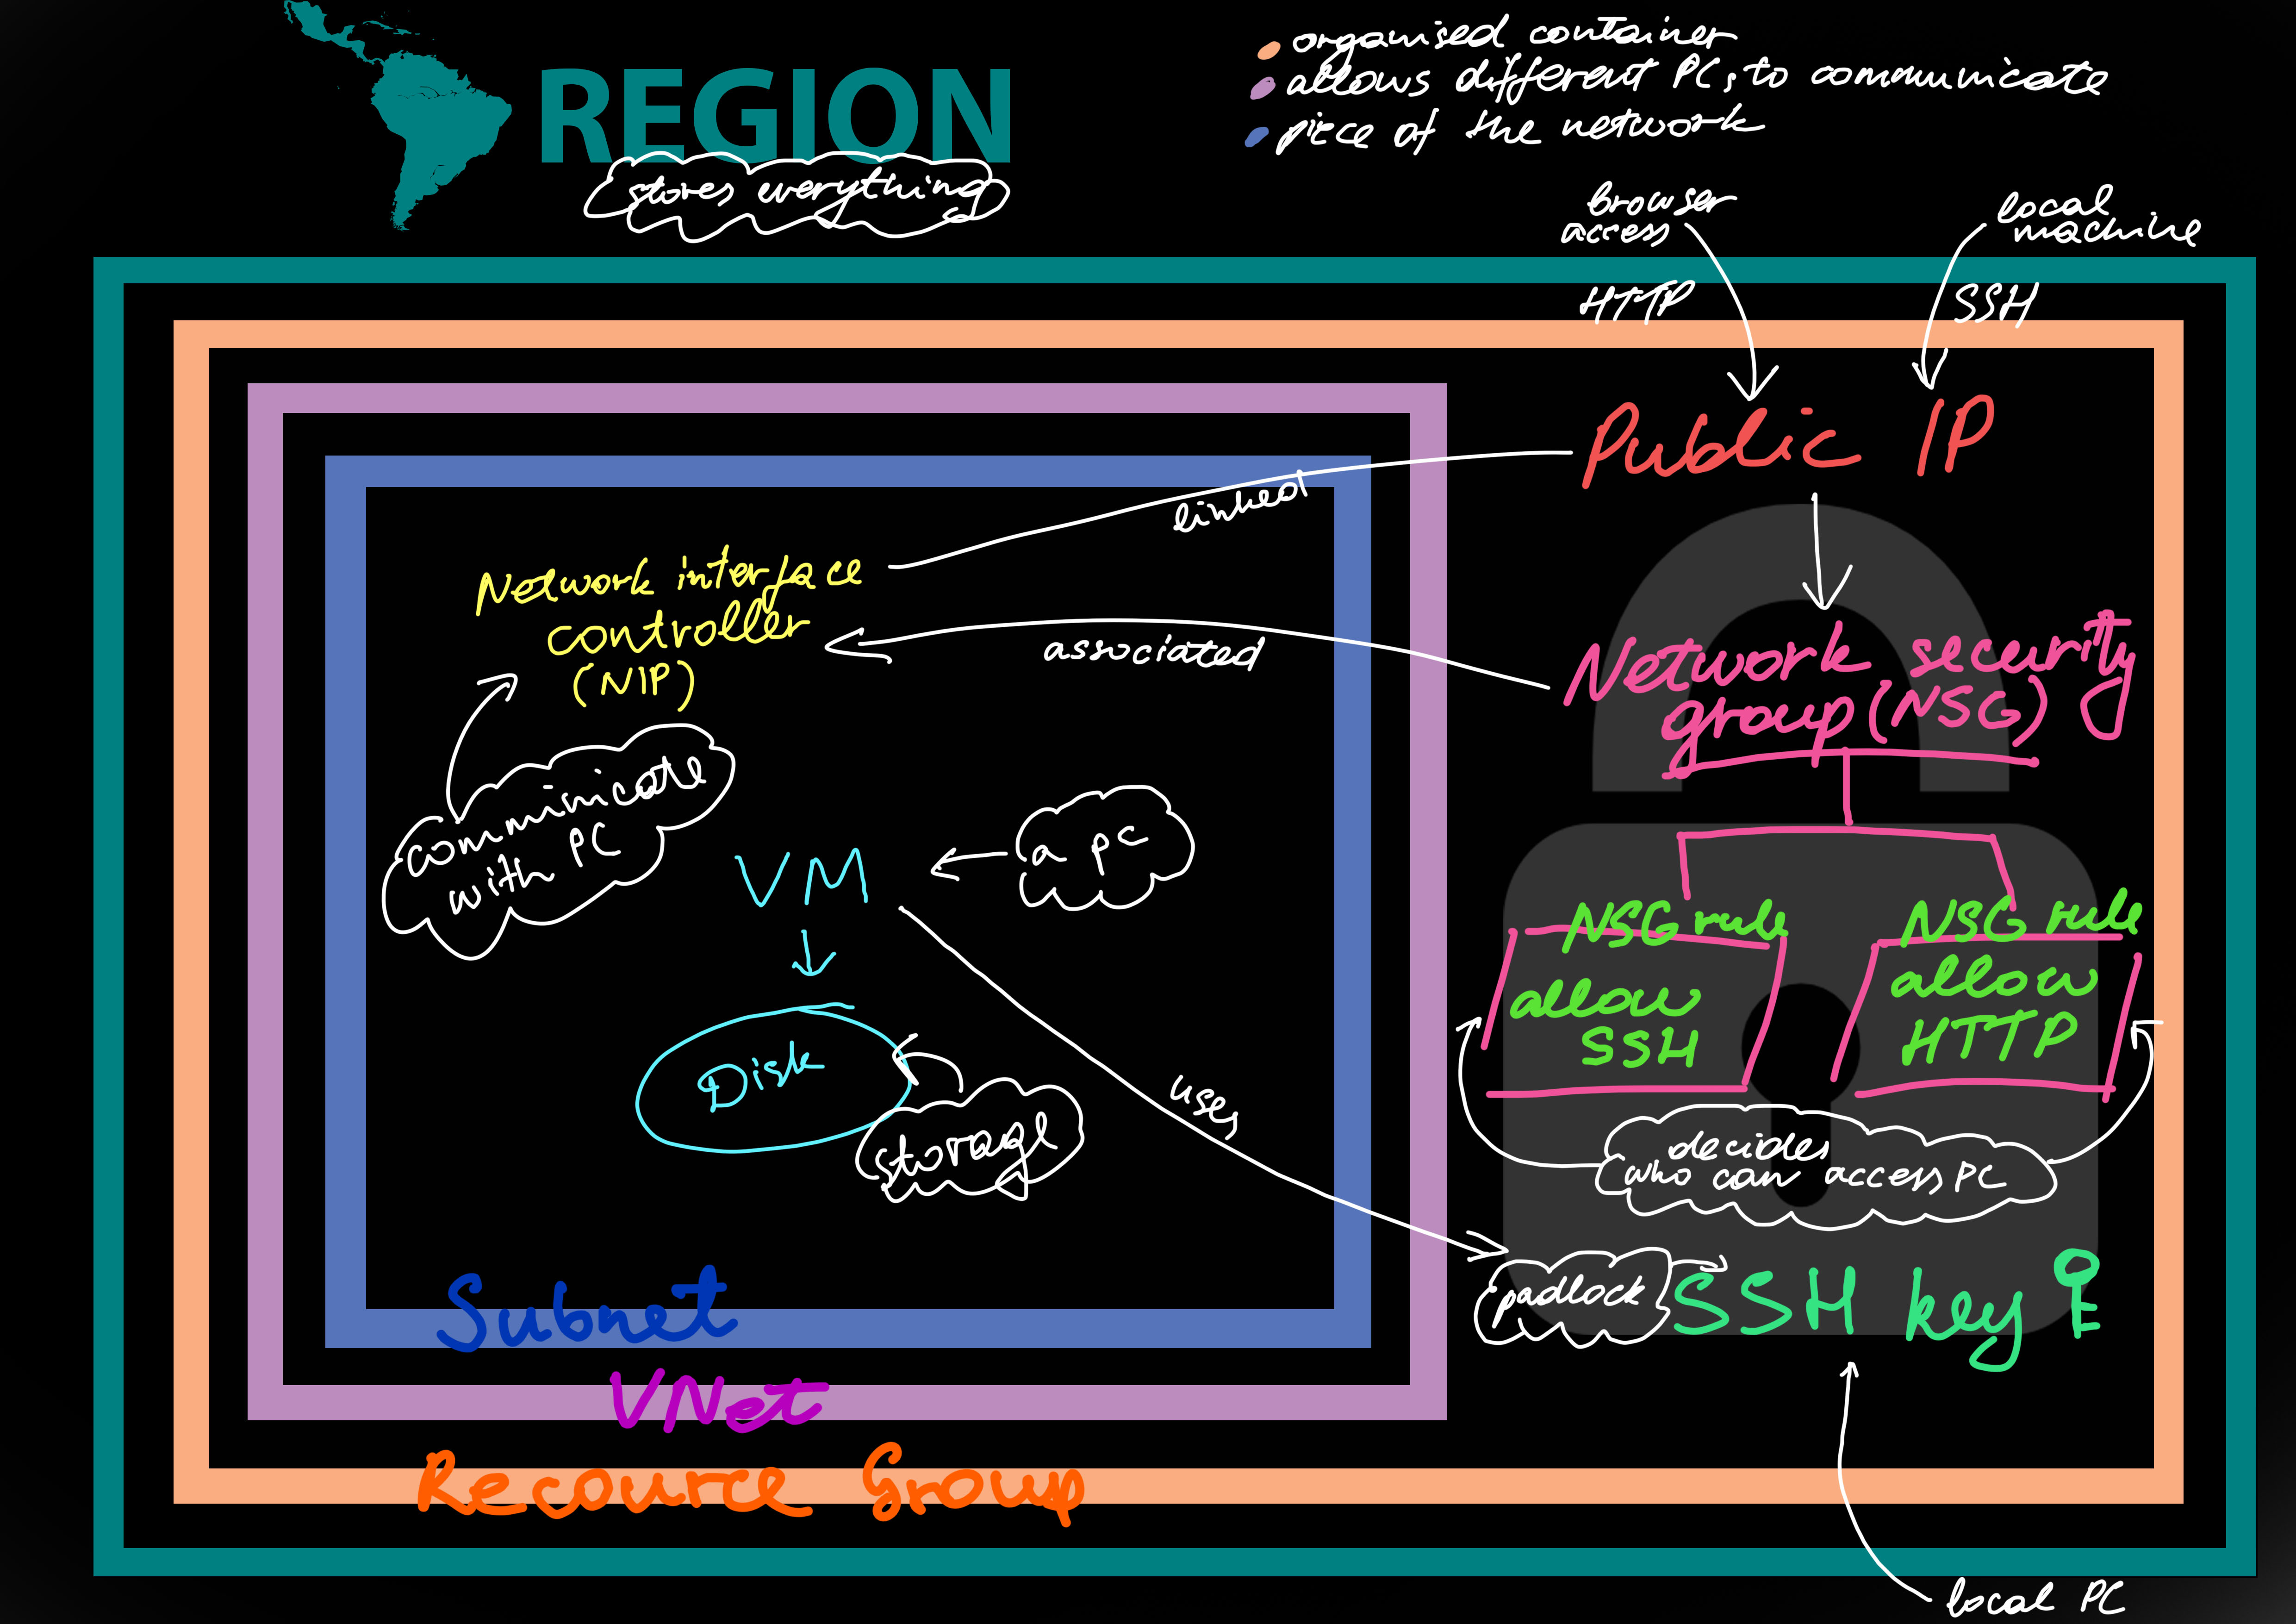 REGION
stores everything
organised container
allows different PCs to communicate
piece of the network
browser
access
local
machine
HTTP
SSH
Public IP
linked
Network interface
controller
(NIP)
associated
Network security
group (NSG)
communicate
with PC
VM
a pc
NSG rule
allow
SSH
NSG rule
allow
HTTP
Disk
storage
uses
decides
who can access PC
padlock
SSH key
Subnet
VNet
Recource Group
local PC